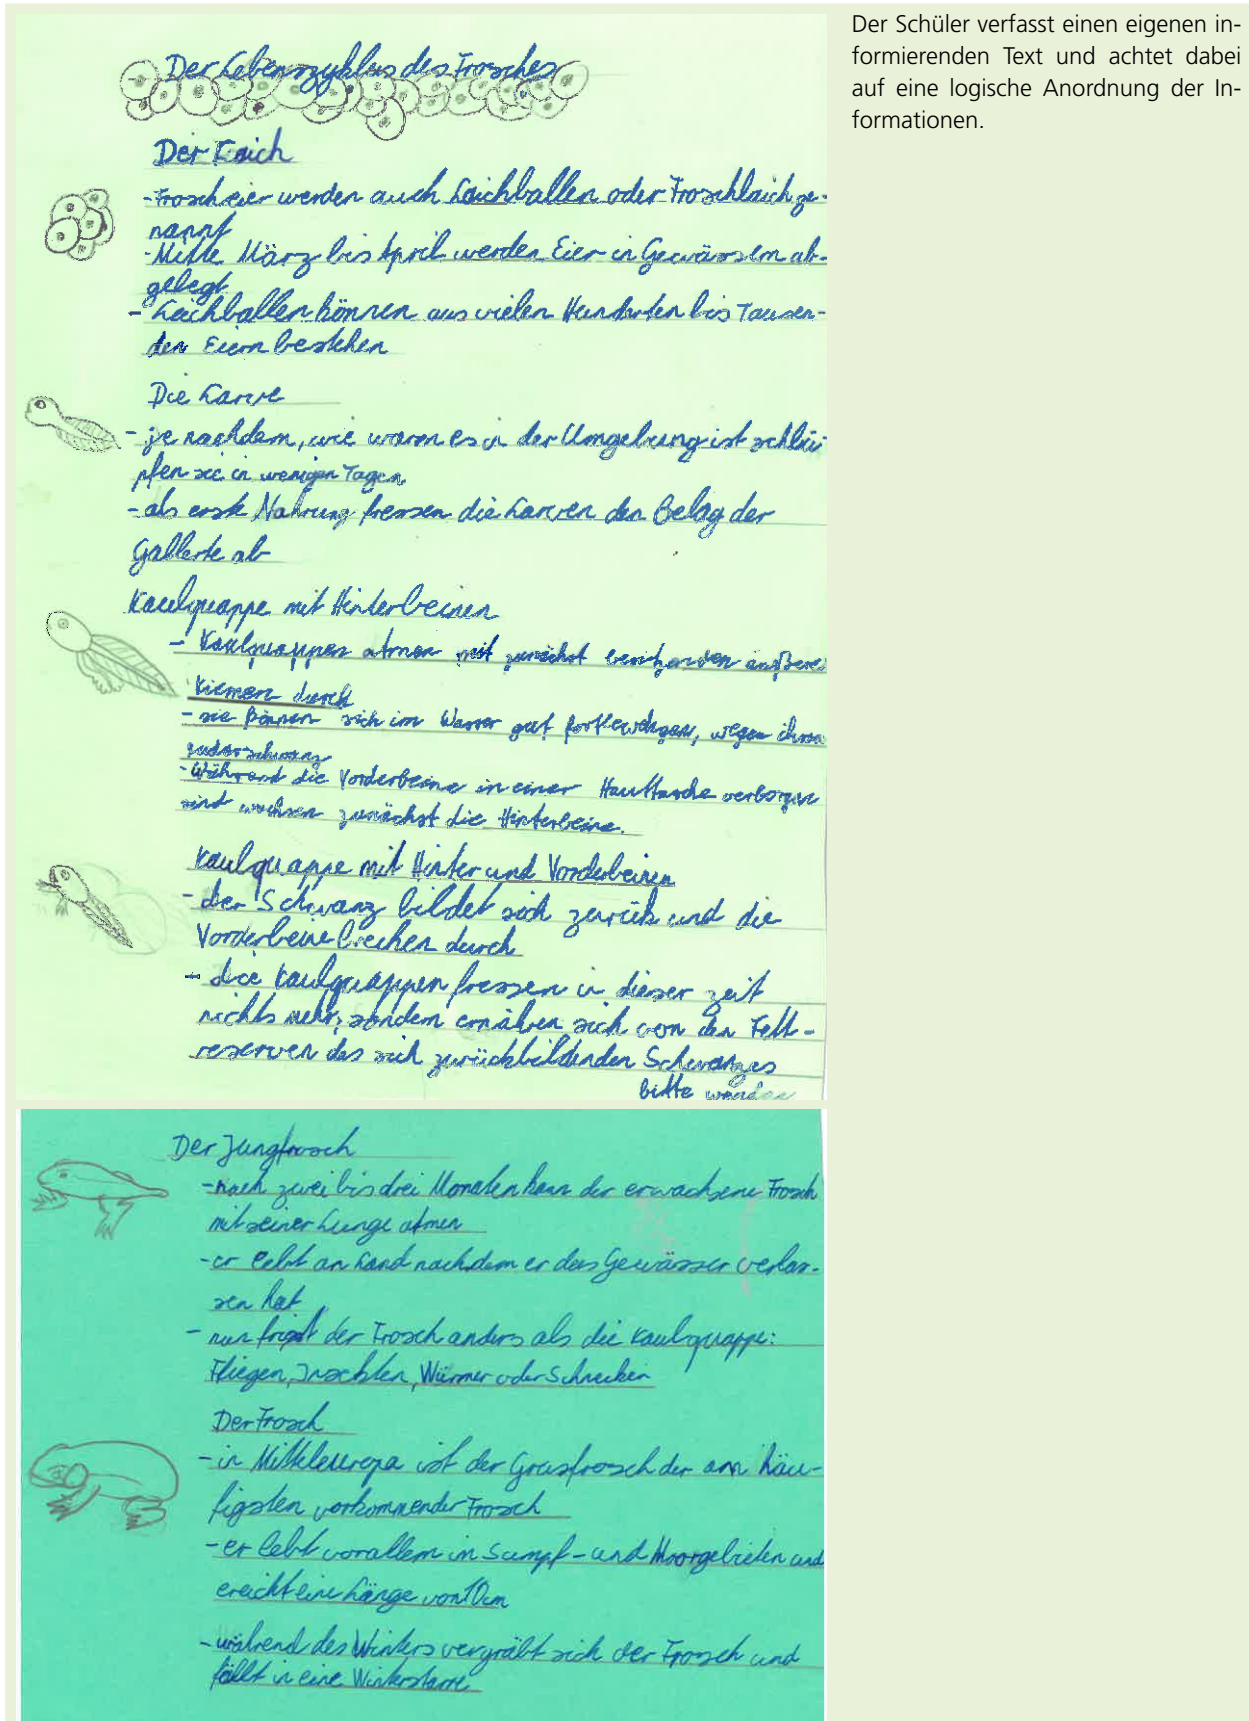 Der Schüler verfasst einen eigenen in-
formierenden Text und achtet dabei
auf eine logische Anordnung der In-
formationen.
Der Lebenszyklus des Frosches
Der Laich
-Froscheier werden auch Laichballen oder Froschlaich ge-
nannt
-Mitte März bis April werden Eier in Gewässern ab-
gelegt
- Laichballen können aus vielen Hunderten bis Tausen-
den Eiern bestehen
Die Larve
- je nachdem, wie warm es in der Umgebung ist schlü-
pfen sie in wenigen Tagen
- als erste Nahrung fressen die Larven den Belag der
Gallerte ab
Kaulquappe mit Hinterbeinen
- Kaulquappen atmen mit zunächst äußeren
Kiemen durch
- sie können sich im Wasser gut fortbewegen, wegen ihren
Ruderschwanz
- Während die Vorderbeine in einer Hauttasche verborgen
sind wachsen zunächst die Hinterbeine.
Kaulquappe mit Hinter und Vorderbeinen
- der Schwanz bildet sich zurück und die
Vorderbeine brechen durch
- die Kaulquappen fressen in dieser zeit
nichts mehr, sondern ernähren sich von den Fett-
reserven des sich zurückbildenden Schwanzes
bitte wenden
Der Jungfrosch
- nach zwei bis drei Monaten kann der erwachsene Frosch
mit seiner Lunge atmen
- er lebt an Land nachdem er das Gewässer verlas-
sen hat
- nun frisst der Frosch anders als die Kaulquappe:
Fliegen, Insekten, Würmer oder Schnecken
Der Frosch
- in Mitteleuropa ist der Grasfrosch der am häu-
figsten vorkommender Frosch
- er lebt vorallem in Sumpf- und Moorgebieten und
ereicht eine Länge von 10cm
- während des Winters vergräbt sich der Frosch und
fällt in eine Winterstarre